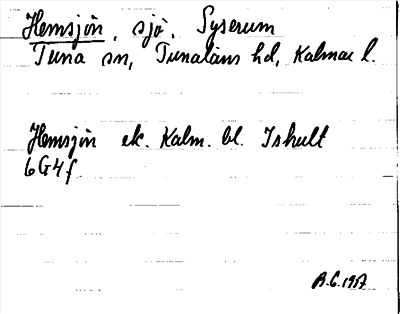 Hemsjön, sjö, Syserum
Tuna sn, Tunaläns hd, Kalmar l.
Hemsjön ek. Kalm. bl. Ishult
6G4f
B.G. 1957